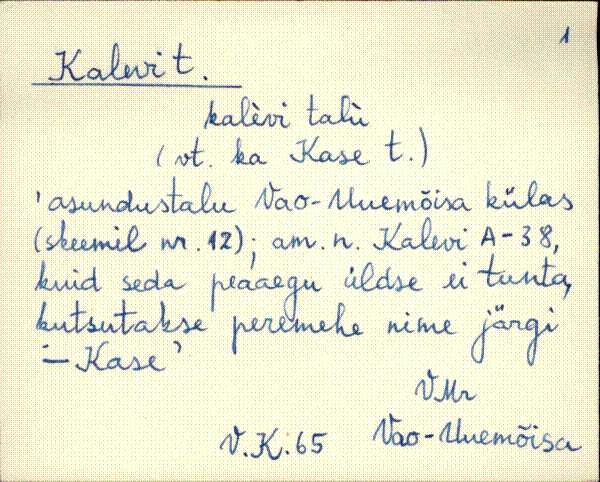 1
Kalevi t.
kalèvi talù
(vt. ka Kase t.)
'asundustalu Vao-Uuemõisa külas
(skeemil nr. 12); am. n. Kalevi A-38,
kuid seda peaaegu üldse ei tunta,
kutsutakse peremehe nime järgi
– Kase'
VMr
V.K. 65 Vao-Uuemõisa